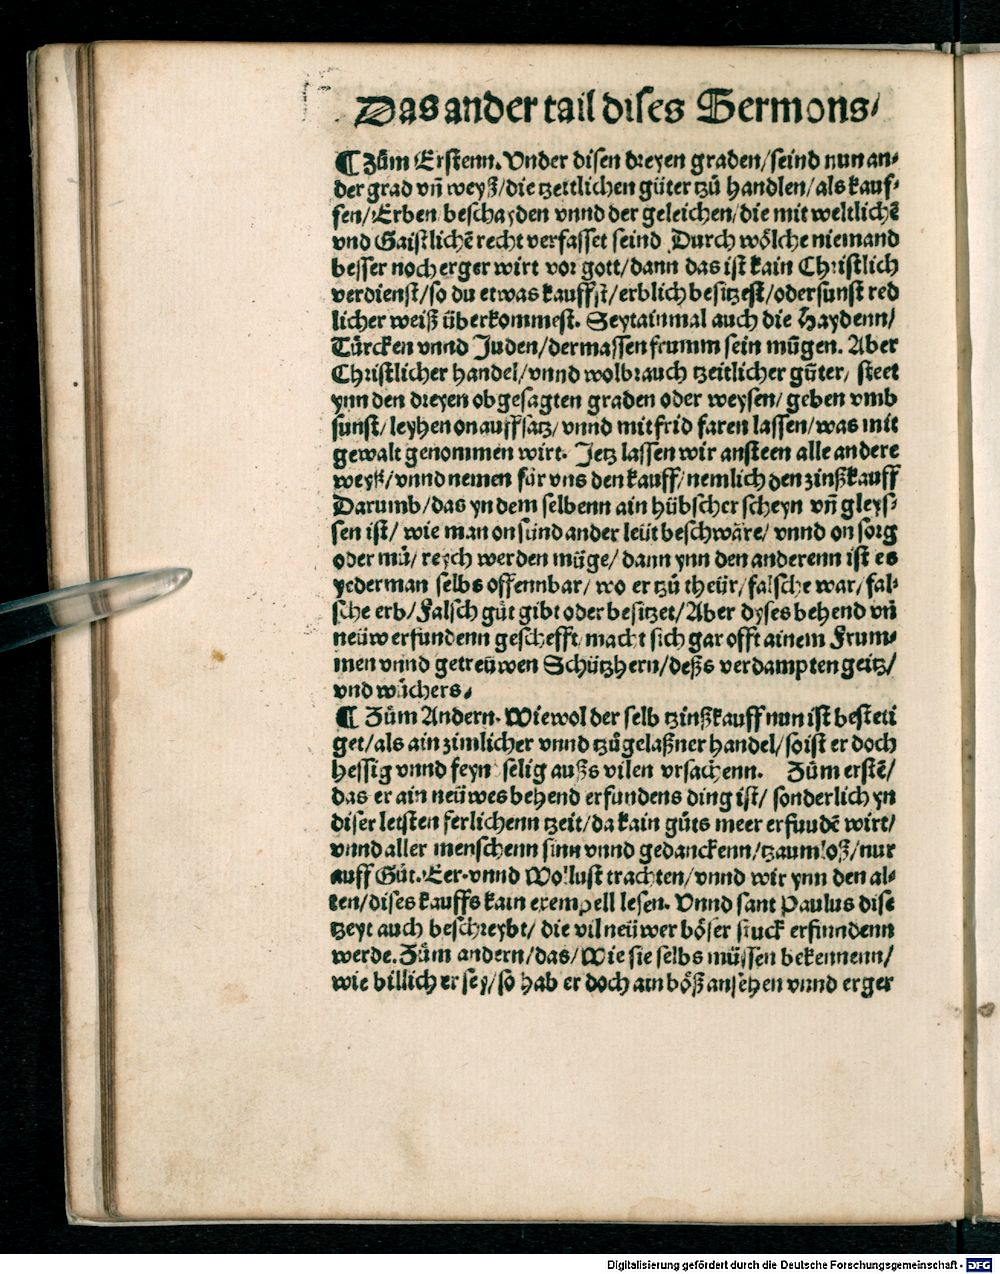 Das ander tail dises Sermons/
¶ Zům Erstenn. Vnder disen dreyen graden/seind nun an⸗
der grad vñ weyß/die tzeittlichen güter tzů handlen/als kauf⸗
fen/Erben beschayden vnnd der geleichen/die mit weltlichē
vnd Gaistlichē recht verfasset seind Durch wölche niemand
besser noch erger wirt vor gott/dann das ist kain Christlich
verdienst/so du etwas kauffst/erblich besitzest/oder sunst red
licher weiß überkommest. Seytainmal auch die Haydenn/
Türcken vnnd Juden/dermassen frumm sein mügen. Aber
Christlicher handel/vnnd wolbrauch tzeitlicher gůter/ steet
ynn den dreyen obgesagten graden oder weysen/ geben vmb
sunst/ leyhen on auffsatz/ vnnd mit frid faren lassen/was mit
gewalt genommen wirt. Jetz lassen wir ansteen alle andere
weyß/vnnd nemen für vns den kauff/nemlich den zinßkauff
Darumb/das yn dem selbenn ain hübscher scheyn vñ gleys⸗
sen ist/ wie man on sünd ander leüt beschwäre/ vnnd on sorg
oder mů/ reych werden müge/ dann ynn den anderenn ist es
yederman selbs offennbar/ wo er tzů theür/falsche war/fal⸗
sche erb/Falsch gůt gibt oder besitzet/Aber dyses behend vñ
neüw erfundenn geschefft macht sich gar offt ainem Frum⸗
men vnnd getreüwen Schützhern/deßs verdampten geitz/
vnd wůchers.
¶ Zům Andern. Wiewol der selb tzinßkauff nun ist besteti
get/als ain zimlicher vnnd tzůgelaßner handel/so ist er doch
hessig vnnd feyn selig außs vilen vrsachenn. Zům erstē/
das er ain neüwes behend erfundens ding ist/ sonderlich yn
diser letsten ferlichenn tzeit/da kain gůts meer erfundē wirt/
vnnd aller menschenn sinn vnnd gedanckenn/tzaumloß/nur
auff Gůt.Eer.vnnd Wollust trachten/vnnd wir ynn den al⸗
ten/dises kauffs kain exempell lesen. Vnnd sant Paulus dise
tzeyt auch beschreybt/ die vil neüwer böser stuck erfunndenn
werde. Zům andern/das/Wie sie selbs müssen bekennenn/
wie billich er sey/so hab er doch ain böß ansehen vnnd erger
Digitalisierung gefördert durch die Deutsche Forschungsgemeinschaft - DFG